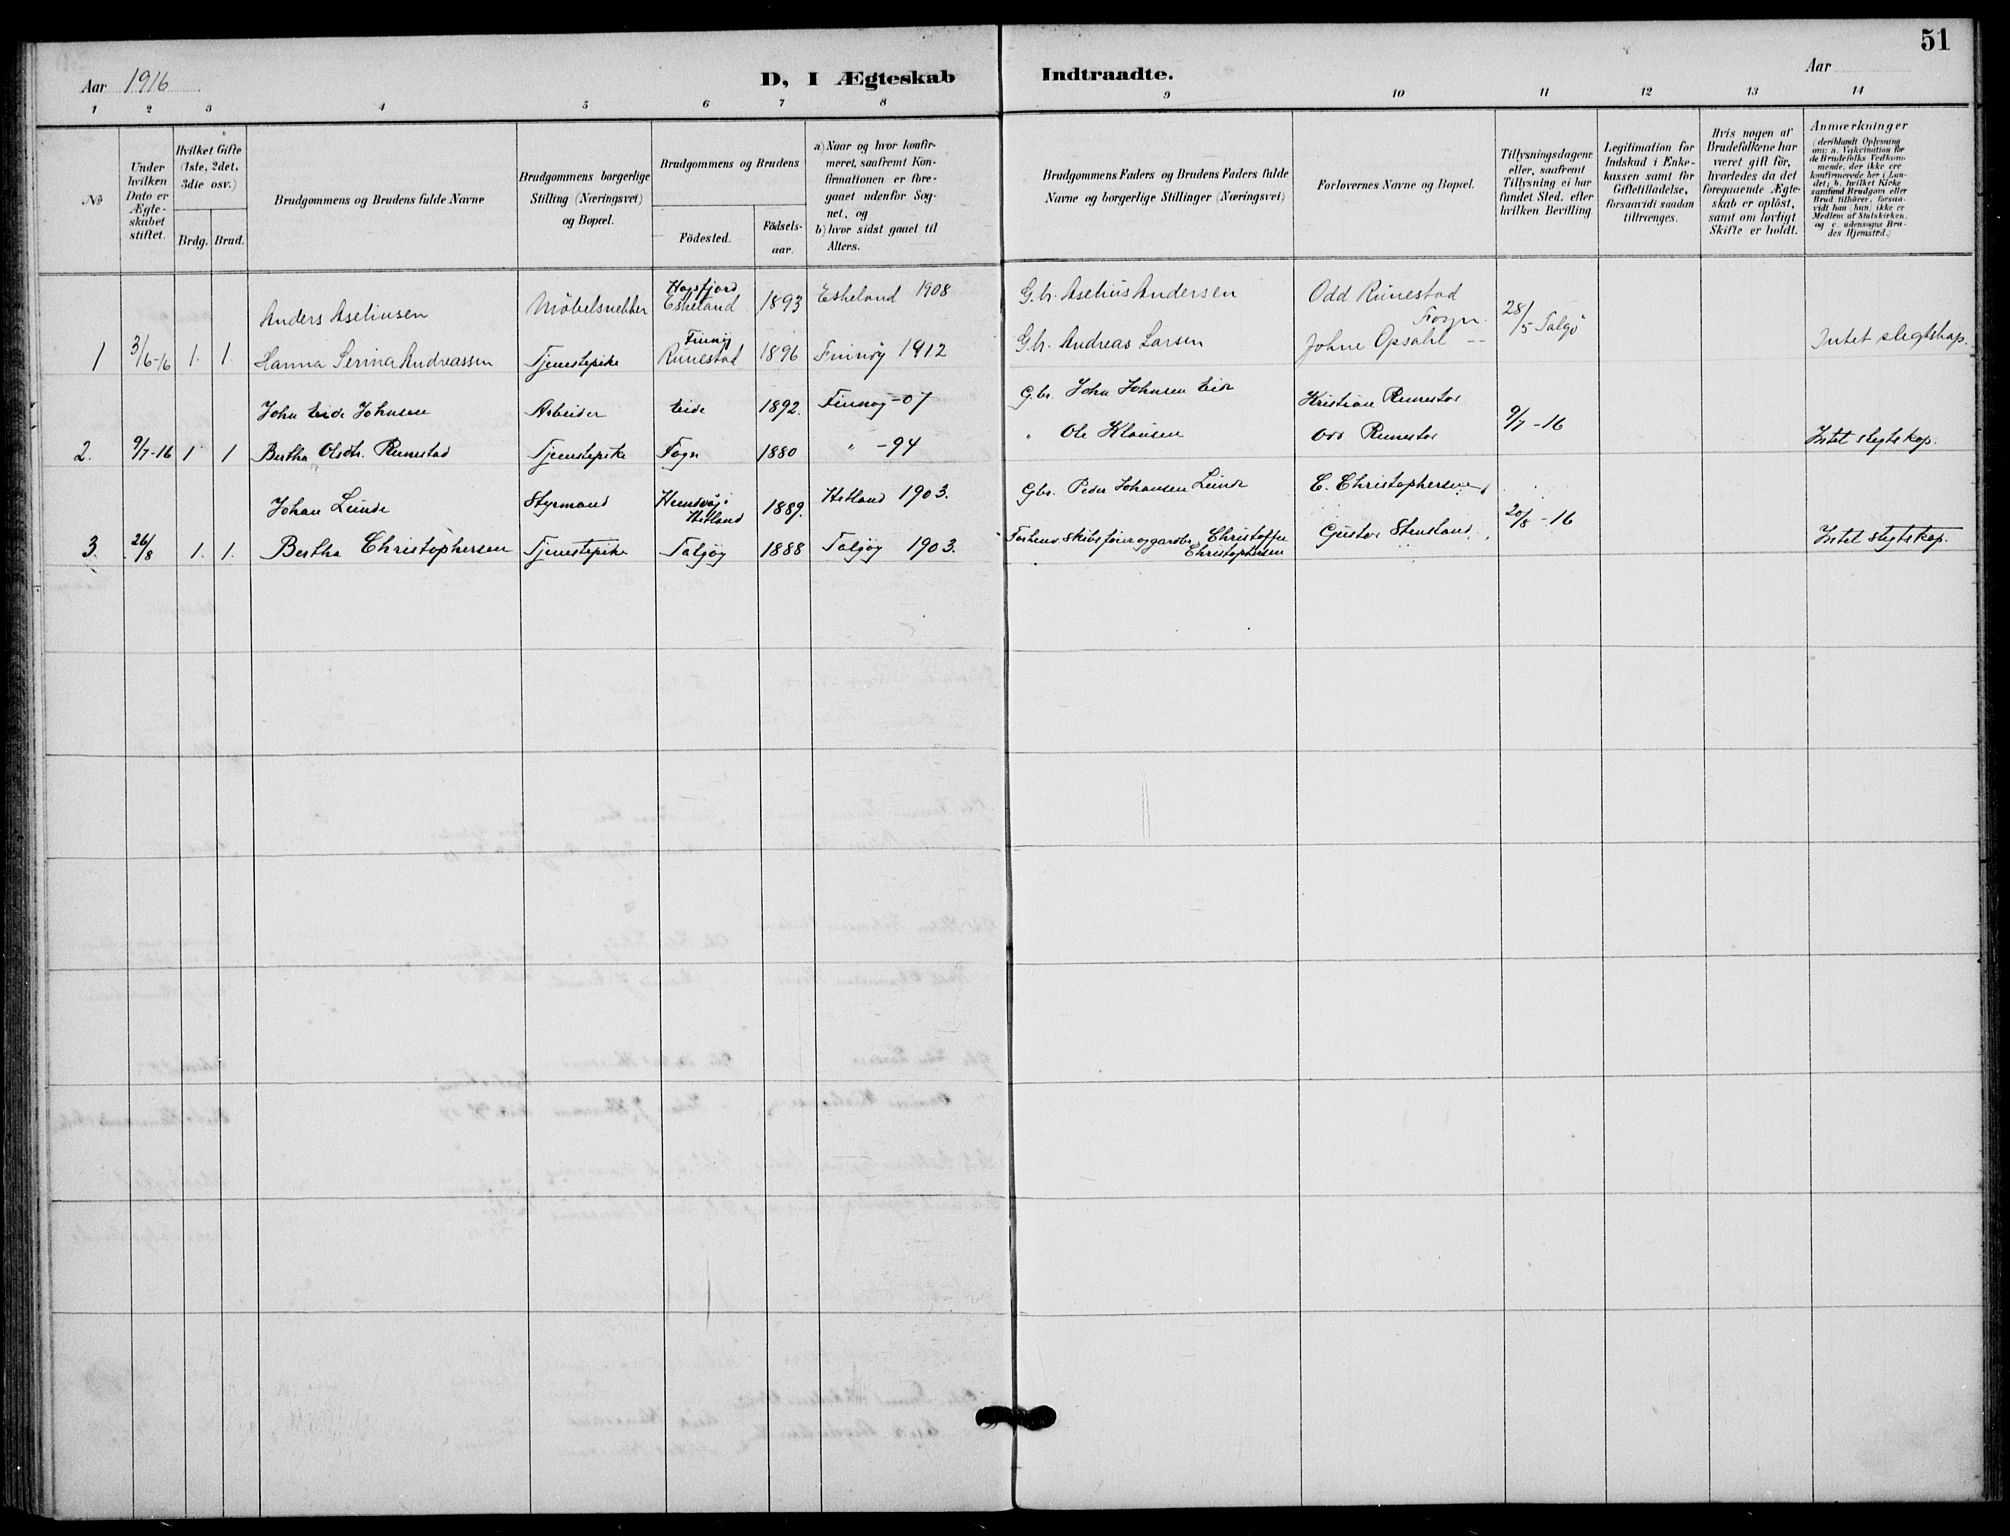 51
Aar 1916
D, I Ægteskab Indtraadte.
Aar
1 2 3 4 5 6 7 8 9 10 11 12 13 14
№
Under hvilken Dato er Ægteskabet stiftet.
Hvilket Gifte (1ste, 2det, 3die osv.)
Brdg. Brud.
Brudgommens og Brudens fulde Navne
Brudgommens borgerlige Stilling (Næringsvei) og Bopæl.
Brudgommens og Brudens
Fødested.
Fødselsaar.
a) Naar og hvor konfirmeret, saafremt Konfirmationen er foregaaet udenfor Sognet, og
b) hvor sidst gaaet til Alters.
Brudgommens Faders og Brudens Faders fulde Navne og borgerlige Stillinger (Næringsvei)
Forlovernes Navne og Bopæl.
Tillysningsdagene eller, saafremt Tillysning ei har fundet Sted, efter hvilken Bevilling.
Legitimation for Indskud i Enkekassen samt for Giftetilladelse, forsaavidt saadan tiltrænges.
Hvis nogen af Brudefolkene har været gift før, hvorledes da det foregaaende Ægteskab er opløst, samt om lovligt Skifte er holdt.
Anmærkninger
(deriblandt Oplysning om: a. Vakcination for de Brudefolks Vedkommende, der ikke ere konfirmerede her i Landet; b. hvilket Kirkesamfund Brudgom eller Brud tilhører, forsaavidt han (hun) ikke er Medlem af Statskirken, og c. udensogns Brudes Hjemsted.)
Anders Aselinsen Møbelsnekker Høgsfjord Eskeland 1893 Eskeland 1908 G.br. Aselius Andersen Odd Runestad Fogn 28/5 Talgö
1 3/6-16 1. 1. Hanna Serina Andreassen Tjenestepike Finnöy Runestad 1896 Finnöy 1912 G.br. Andreas Larsen Johne Opsahl -- Intet slegtskap.
John Eide Johnsen Arbeider Eide 1892. Finnøy -07 Gbr. John Johnsen Eide Kristian Runestad 9/7-16
2. 9/7-16 1 1 Bertha Olsdtr. Runestad Tjenestepike Fogn 1880 " -94 " Ole Klausen Odd Runestad Intet slegtskap.
Johan Lunde Styrmand Hundvåg i Hetland 1889. Hetland 1903. Gbr. Peder Johansen Lunde C. Christophersen 20/8-16
3. 26/8 1. 1. Bertha Christophersen Tjenestepike Talgöy 1888 Talgöy 1903. Forhenv. skibsfører og gaardbr. Christoffer Christophersen Gustav Stensland Intet slegtskap.